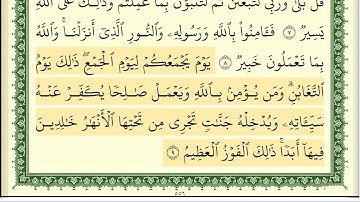 قُلْ بَلَىٰ وَرَبِّي لَتُبْعَثُنَّ ثُمَّ لَتُنَبَّؤُنَّ بِمَا عَمِلْتُمْ وَذَٰلِكَ عَلَى ٱللَّهِ
يَسِيرٌ ٧ فَـَٔامِنُوا۟ بِٱللَّهِ وَرَسُولِهِۦ وَٱلنُّورِ ٱلَّذِىٓ أَنزَلْنَا ۚ وَٱللَّهُ
بِمَا تَعْمَلُونَ خَبِيرٌ ٨ يَوْمَ يَجْمَعُكُمْ لِيَوْمِ ٱلْجَمْعِ ۖ ذَٰلِكَ يَوْمُ
ٱلتَّغَابُنِ ۗ وَمَن يُؤْمِنۢ بِٱللَّهِ وَيَعْمَلْ صَـٰلِحًا يُكَفِّرْ عَنْهُ
سَيِّـَٔاتِهِۦ وَيُدْخِلْهُ جَنَّـٰتٍ تَجْرِى مِن تَحْتِهَا ٱلْأَنْهَـٰرُ خَـٰلِدِينَ
فِيهَآ أَبَدًا ۚ ذَٰلِكَ ٱلْفَوْزُ ٱلْعَظِيمُ ٩
٥٥٦